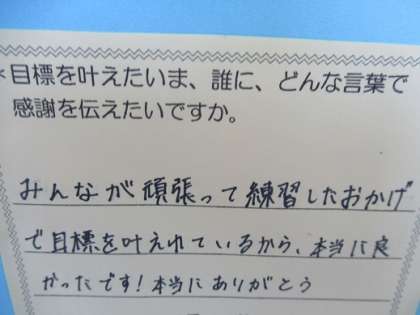 *目標を叶えたいま、誰に、どんな言葉で
感謝を伝えたいですか。
みんなが頑張って練習したおかげ
で目標を叶えれているから、本当に良
かったです!本当にありがとう